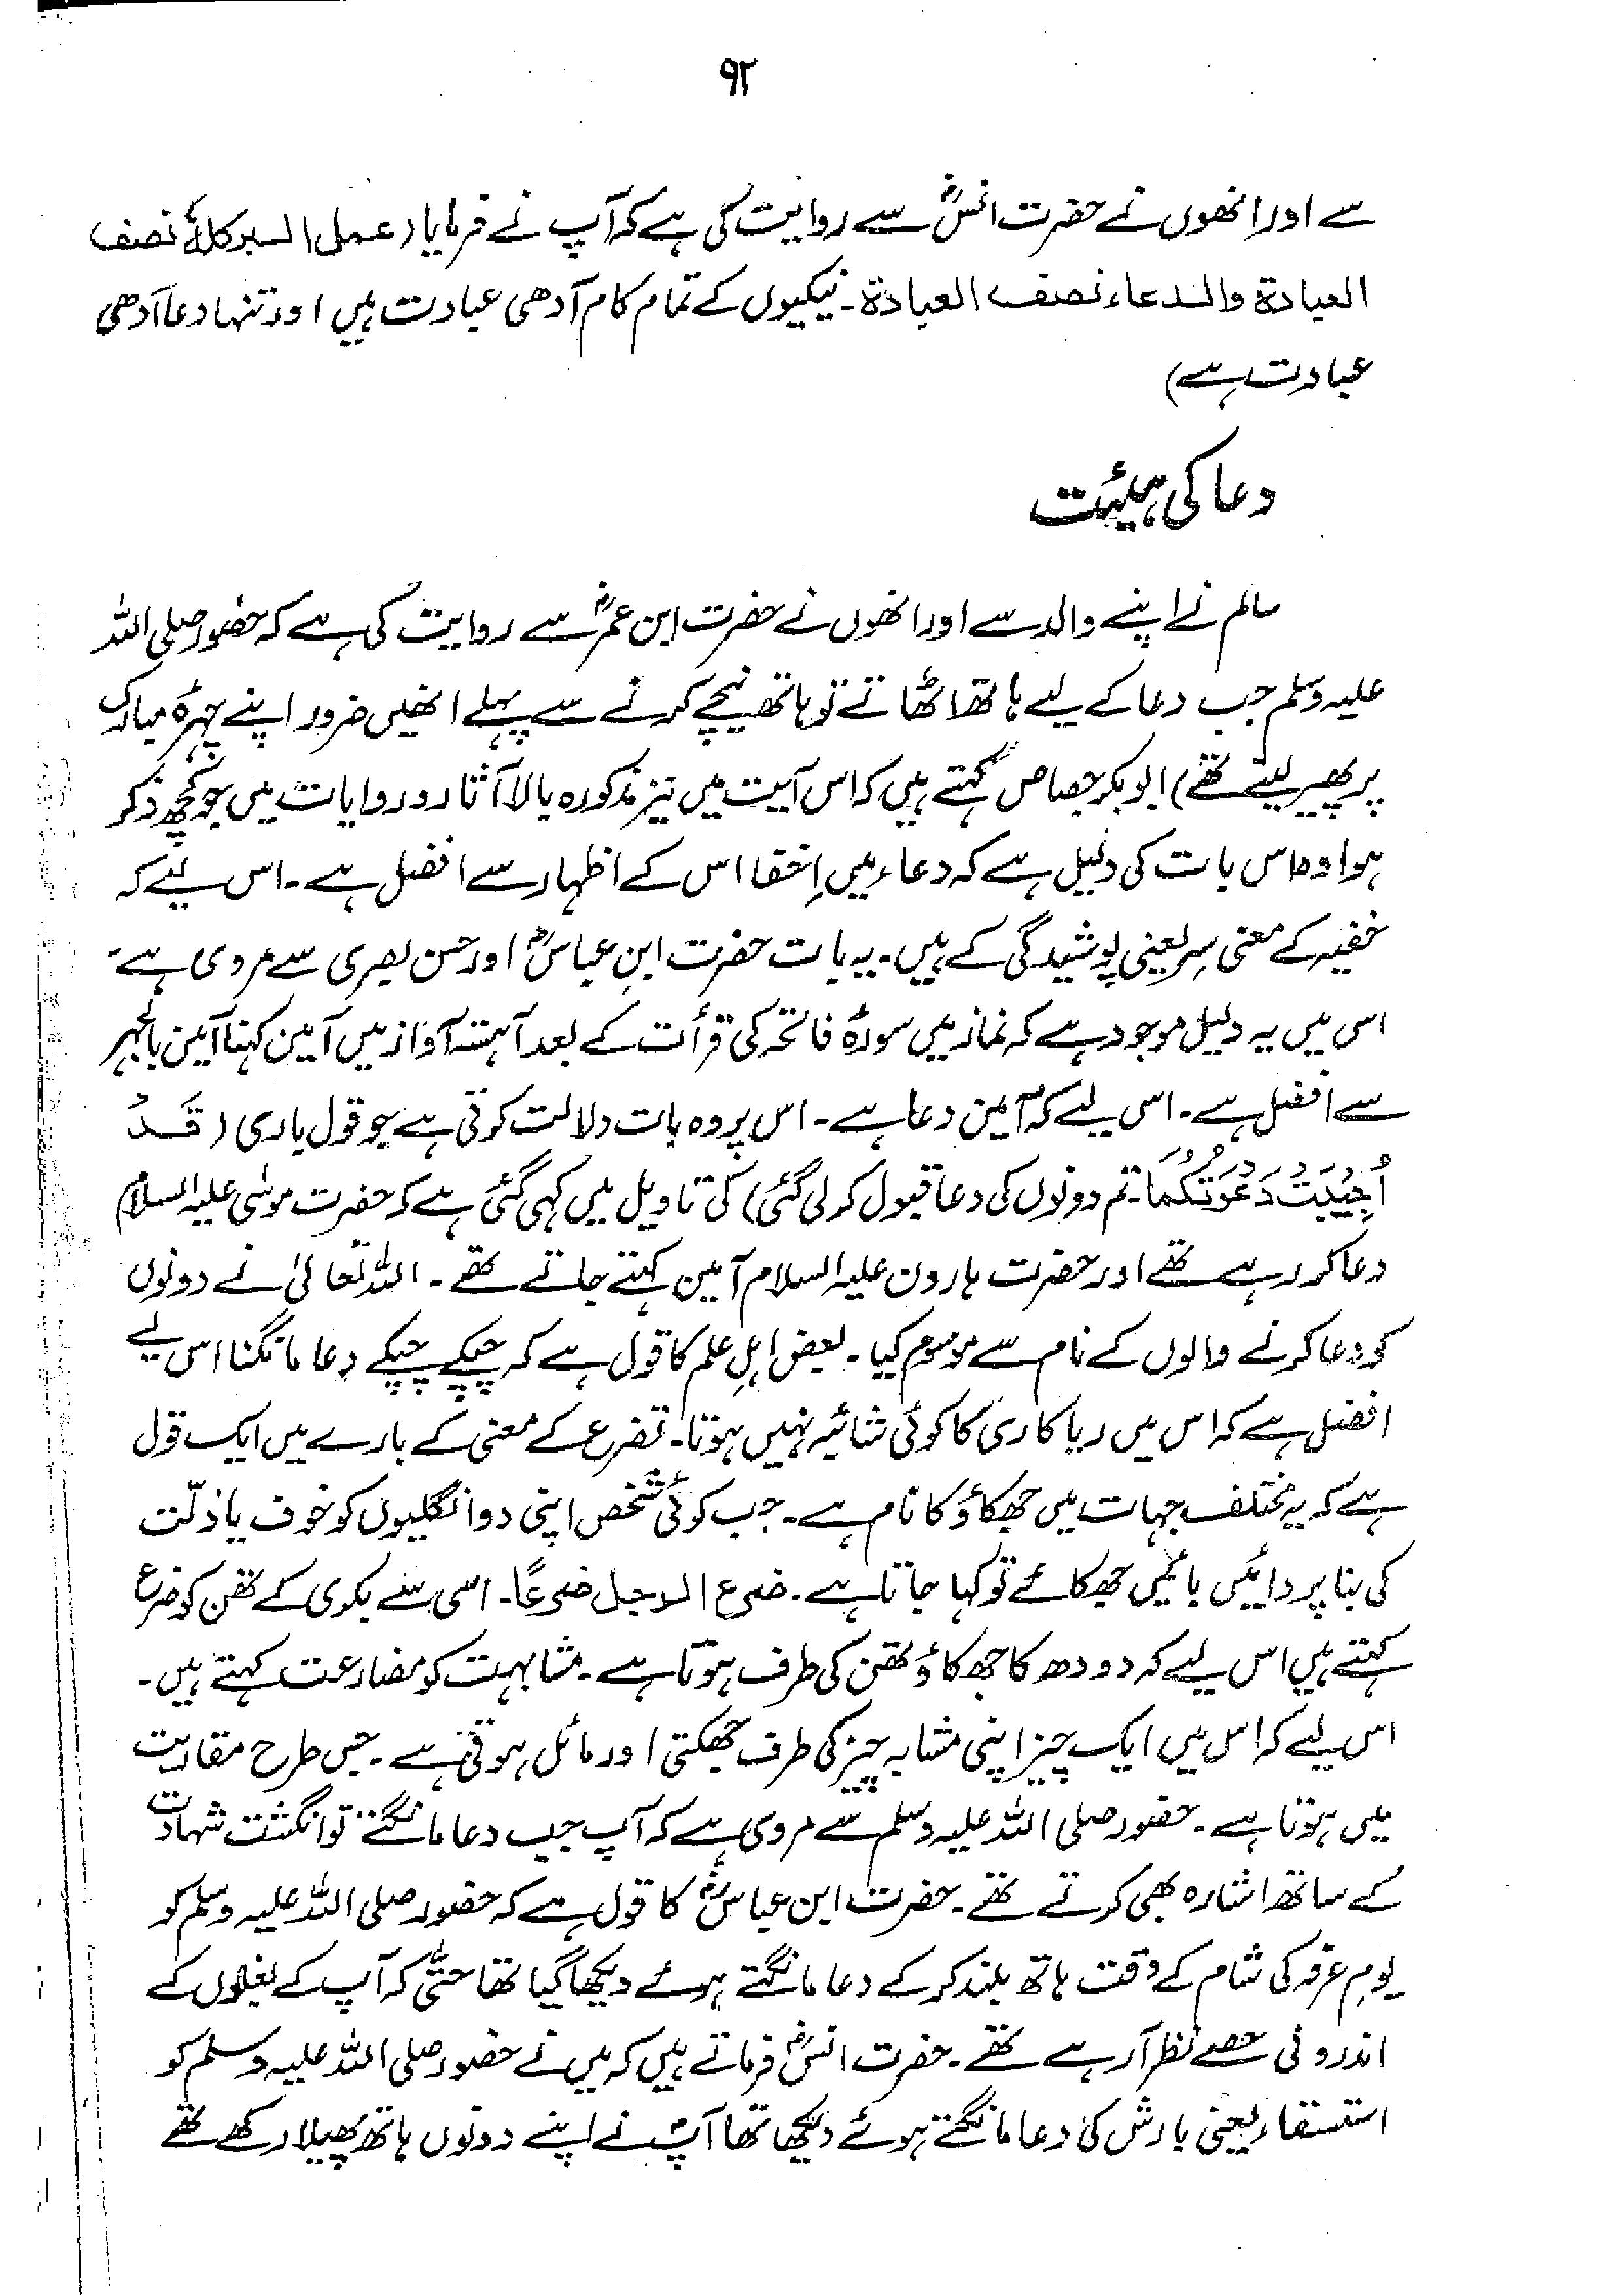 ۹۲
سے اور انھوں نے حضرت انسؓ سے روایت کی ہے کہ آپ نے فرمایا (عمل البر کلہٗ نصف
العبادۃ والدعاء نصف العبادۃ۔ نیکیوں کے تمام کام آدھی عبادت ہیں اور تنہا دعا آدھی
عبادت ہے)
دعا کی ہیئت
سالم نے اپنے والد سے اور انھوں نے حضرت ابن عمرؓ سے روایت کی ہے کہ حضور صلی اللہ
علیہ وسلم جب دعا کے لیے ہاتھ اٹھاتے تو ہاتھ نیچے کرنے سے پہلے انھیں ضرور اپنے چہرۂ مبارک
پر پھیر لیتے تھے) ابوبکر جصاص کہتے ہیں کہ اس آیت میں نیز مذکورہ بالا آثار و روایات میں جو کچھ ذکر
ہوا وہ اس بات کی دلیل ہے کہ دعاء میں اِخفا اس کے اظہار سے افضل ہے۔ اس لیے کہ
خفیہ کے معنی سِر یعنی پوشیدگی کے ہیں۔ یہ بات حضرت ابنِ عباسؓ اور حسن بصری سے مروی ہے۔
اس میں یہ دلیل موجود ہے کہ نماز میں سورۂ فاتحہ کی قرأت کے بعد آہستہ آواز میں آمین کہنا آمین بالجہر
سے افضل ہے۔ اس لیے کہ آمین دعا ہے۔ اس پر وہ بات دلالت کرتی ہے جو قول باری (قَدْ
اُجِیْبَتْ دَعْوَتُکُمَا۔ تم دونوں کی دعا قبول کر لی گئی) کی تاویل میں کہی گئی ہے کہ حضرت موسٰی علیہ السلام
دعا کر رہے تھے اور حضرت ہارون علیہ السلام آمین کہتے جاتے تھے۔ اللہ تعالیٰ نے دونوں
کو دعا کرنے والوں کے نام سے موسوم کیا۔ بعض اہلِ علم کا قول ہے کہ چپکے چپکے دعا مانگنا اس لیے
افضل ہے کہ اس میں ریا کاری کا کوئی شائبہ نہیں ہوتا۔ تضرع کے معنی کے بارے میں ایک قول
ہے کہ یہ مختلف جہات میں جھکاؤ کا نام ہے۔ جب کوئی شخص اپنی دو انگلیوں کو خوف یا ذلّت
کی بنا پر دائیں بائیں جھکائے تو کہا جاتا ہے۔ ضرع الرجل ضرعًا۔ اسی سے بکری کے تھن کو ضرع
کہتے ہیں اس لیے کہ دودھ کا جھکاؤ تھن کی طرف ہوتا ہے۔ مشابہت کو مضارعت کہتے ہیں۔
اس لیے کہ اس میں ایک چیز اپنی مشابہ چیز کی طرف جھکتی اور مائل ہوتی ہے۔ جس طرح مقاربت
میں ہوتا ہے۔ حضور صلی اللہ علیہ وسلم سے مروی ہے کہ آپ جب دعا مانگتے تو انگشت شہادت
کے ساتھ اشارہ بھی کرتے تھے۔ حضرت ابن عباسؓ کا قول ہے کہ حضور صلی اللہ علیہ وسلم کو
یومِ عرفہ کی شام کے وقت ہاتھ بلند کر کے دعا مانگتے ہوئے دیکھا گیا تھا حتّٰی کہ آپ کے بغلوں کے
اندرونی حصے نظر آ رہے تھے۔ حضرت انسؓ فرماتے ہیں کہ میں نے حضور صلی اللہ علیہ وسلم کو
استسقاء یعنی بارش کی دعا مانگتے ہوئے دیکھا تھا آپؐ نے اپنے دونوں ہاتھ پھیلا رکھے تھے